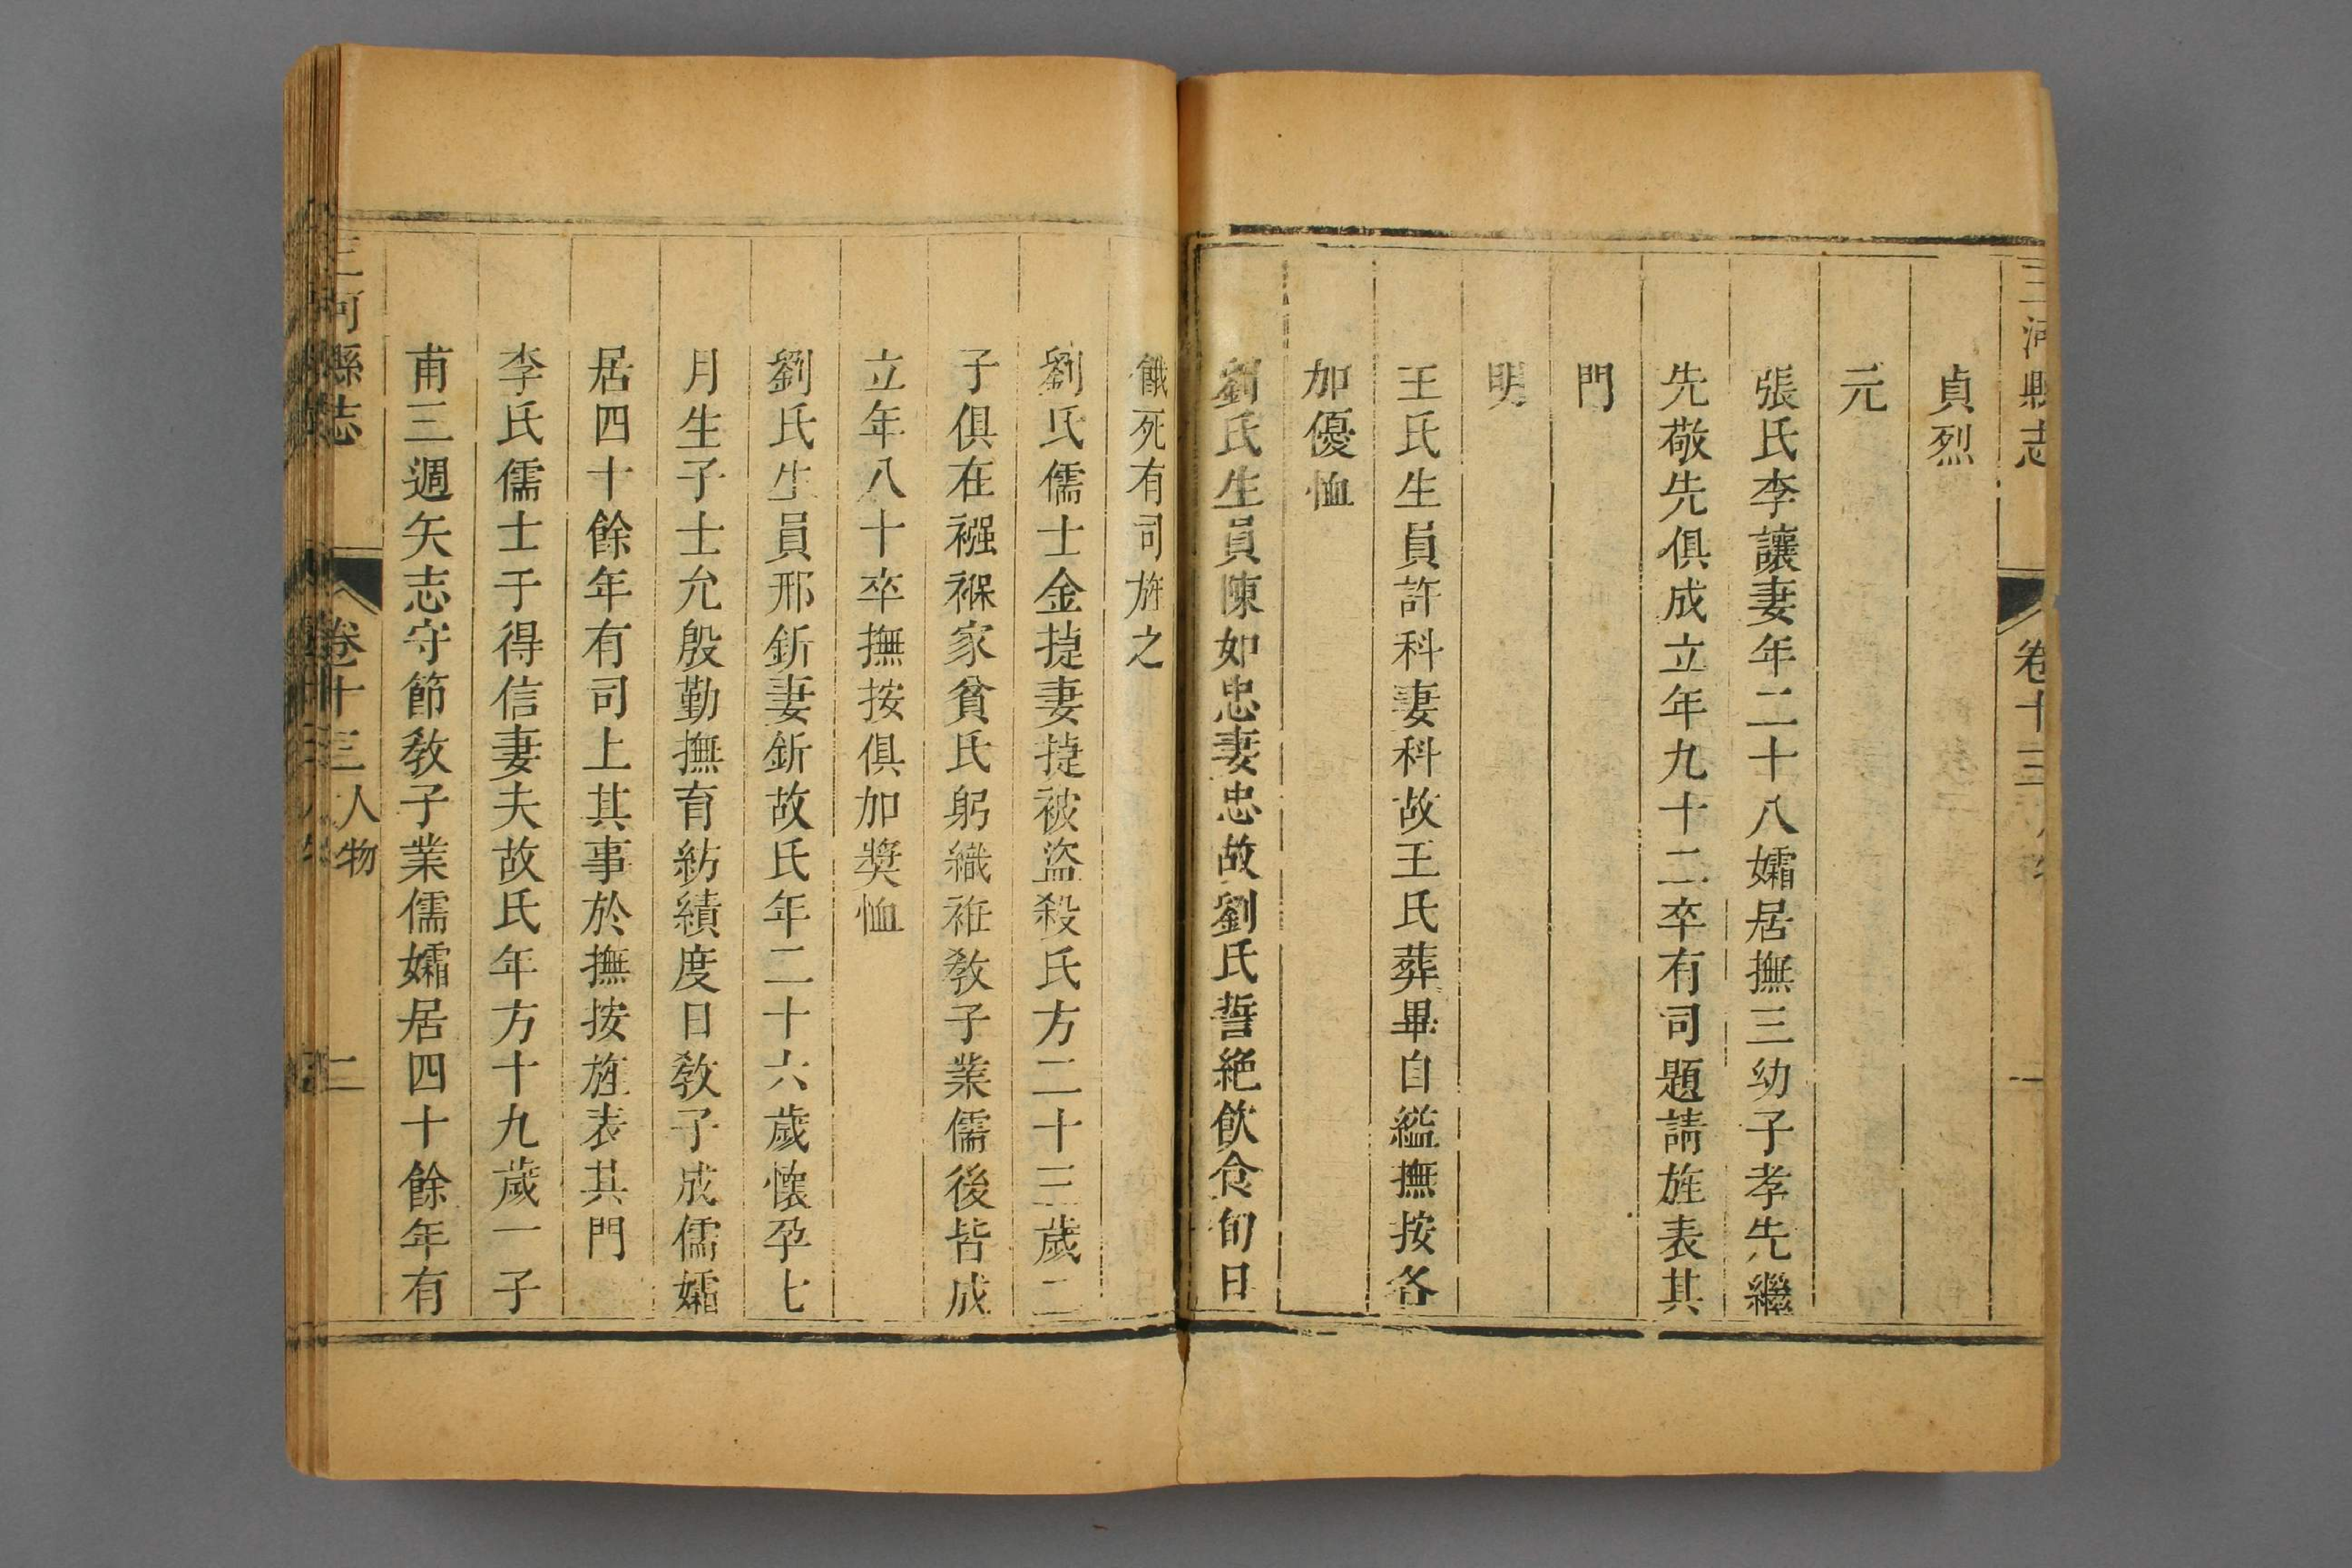 三河縣志 卷十三 一
貞烈
元
張氏李讓妻年二十八孀居撫三幼子孝先繼
先敬先俱成立年九十二卒有司題請旌表其
門
明
王氏生員許科妻科故王氏葬畢自縊撫按各
加優恤
劉氏生員陳如忠妻忠故劉氏誓絶飲食旬日
餓死有司旌之
劉氏儒士金㨗妻㨗被盜殺氏方二十三歲二
子俱在襁褓家貧氏躬織袵敎子業儒後皆成
立年八十卒撫按俱加奬恤
劉氏生員邢釿妻釿故氏年二十六歲懷孕七
月生子士允殷勤撫育紡績度日敎子成儒孀
居四十餘年有司上其事於撫按旌表其門
李氏儒士于得信妻夫故氏年方十九歲一子
甫三週矢志守節敎子業儒孀居四十餘年有
三河縣志 卷十三 人物 二